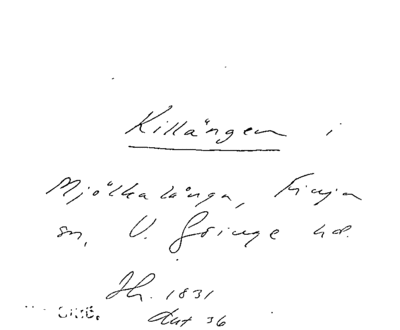 Killängen i
Mjölkalånga, Finja
sn, V. Göinge hd.
Jh. 1831
Akt 36